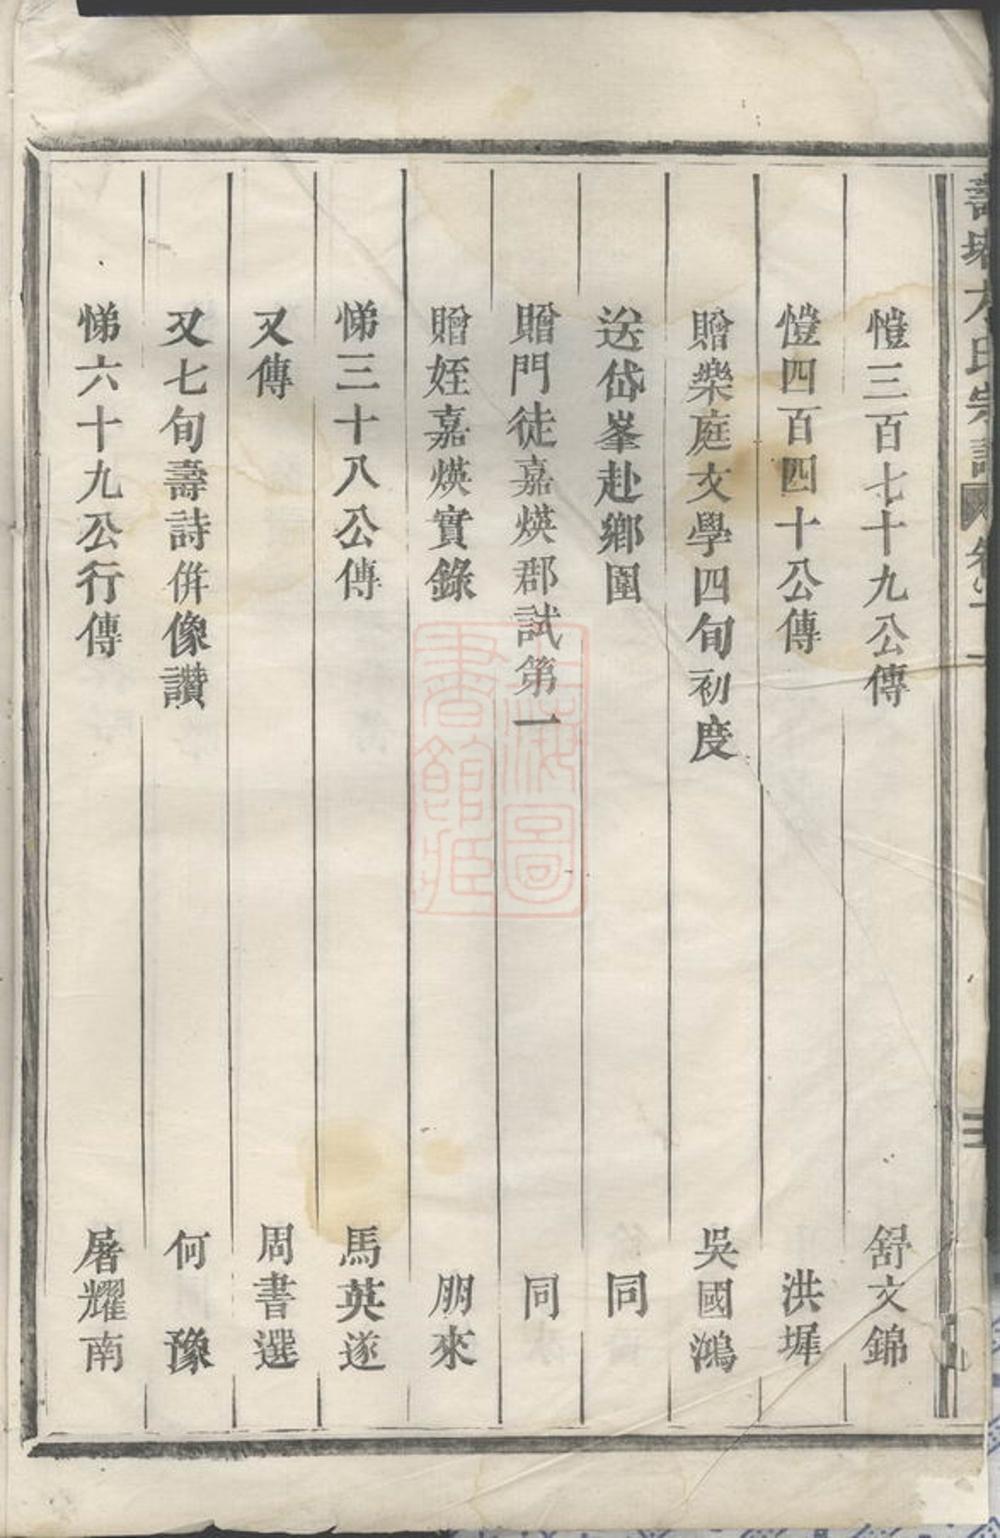 愷三百七十九公傳 舒文錦
愷四百四十公傳 洪墀
贈樂庭文學四旬初度 吳國鴻
送岱峯赴鄉闈 同
贈門徒嘉煐郡試第一 同
贈姪嘉煐實錄 朋來
悌三十八公傳 馬英遂
又傳 周書選
又七旬壽詩併像讚 何豫
悌六十九公行傳 屠耀南
上海圖書館藏